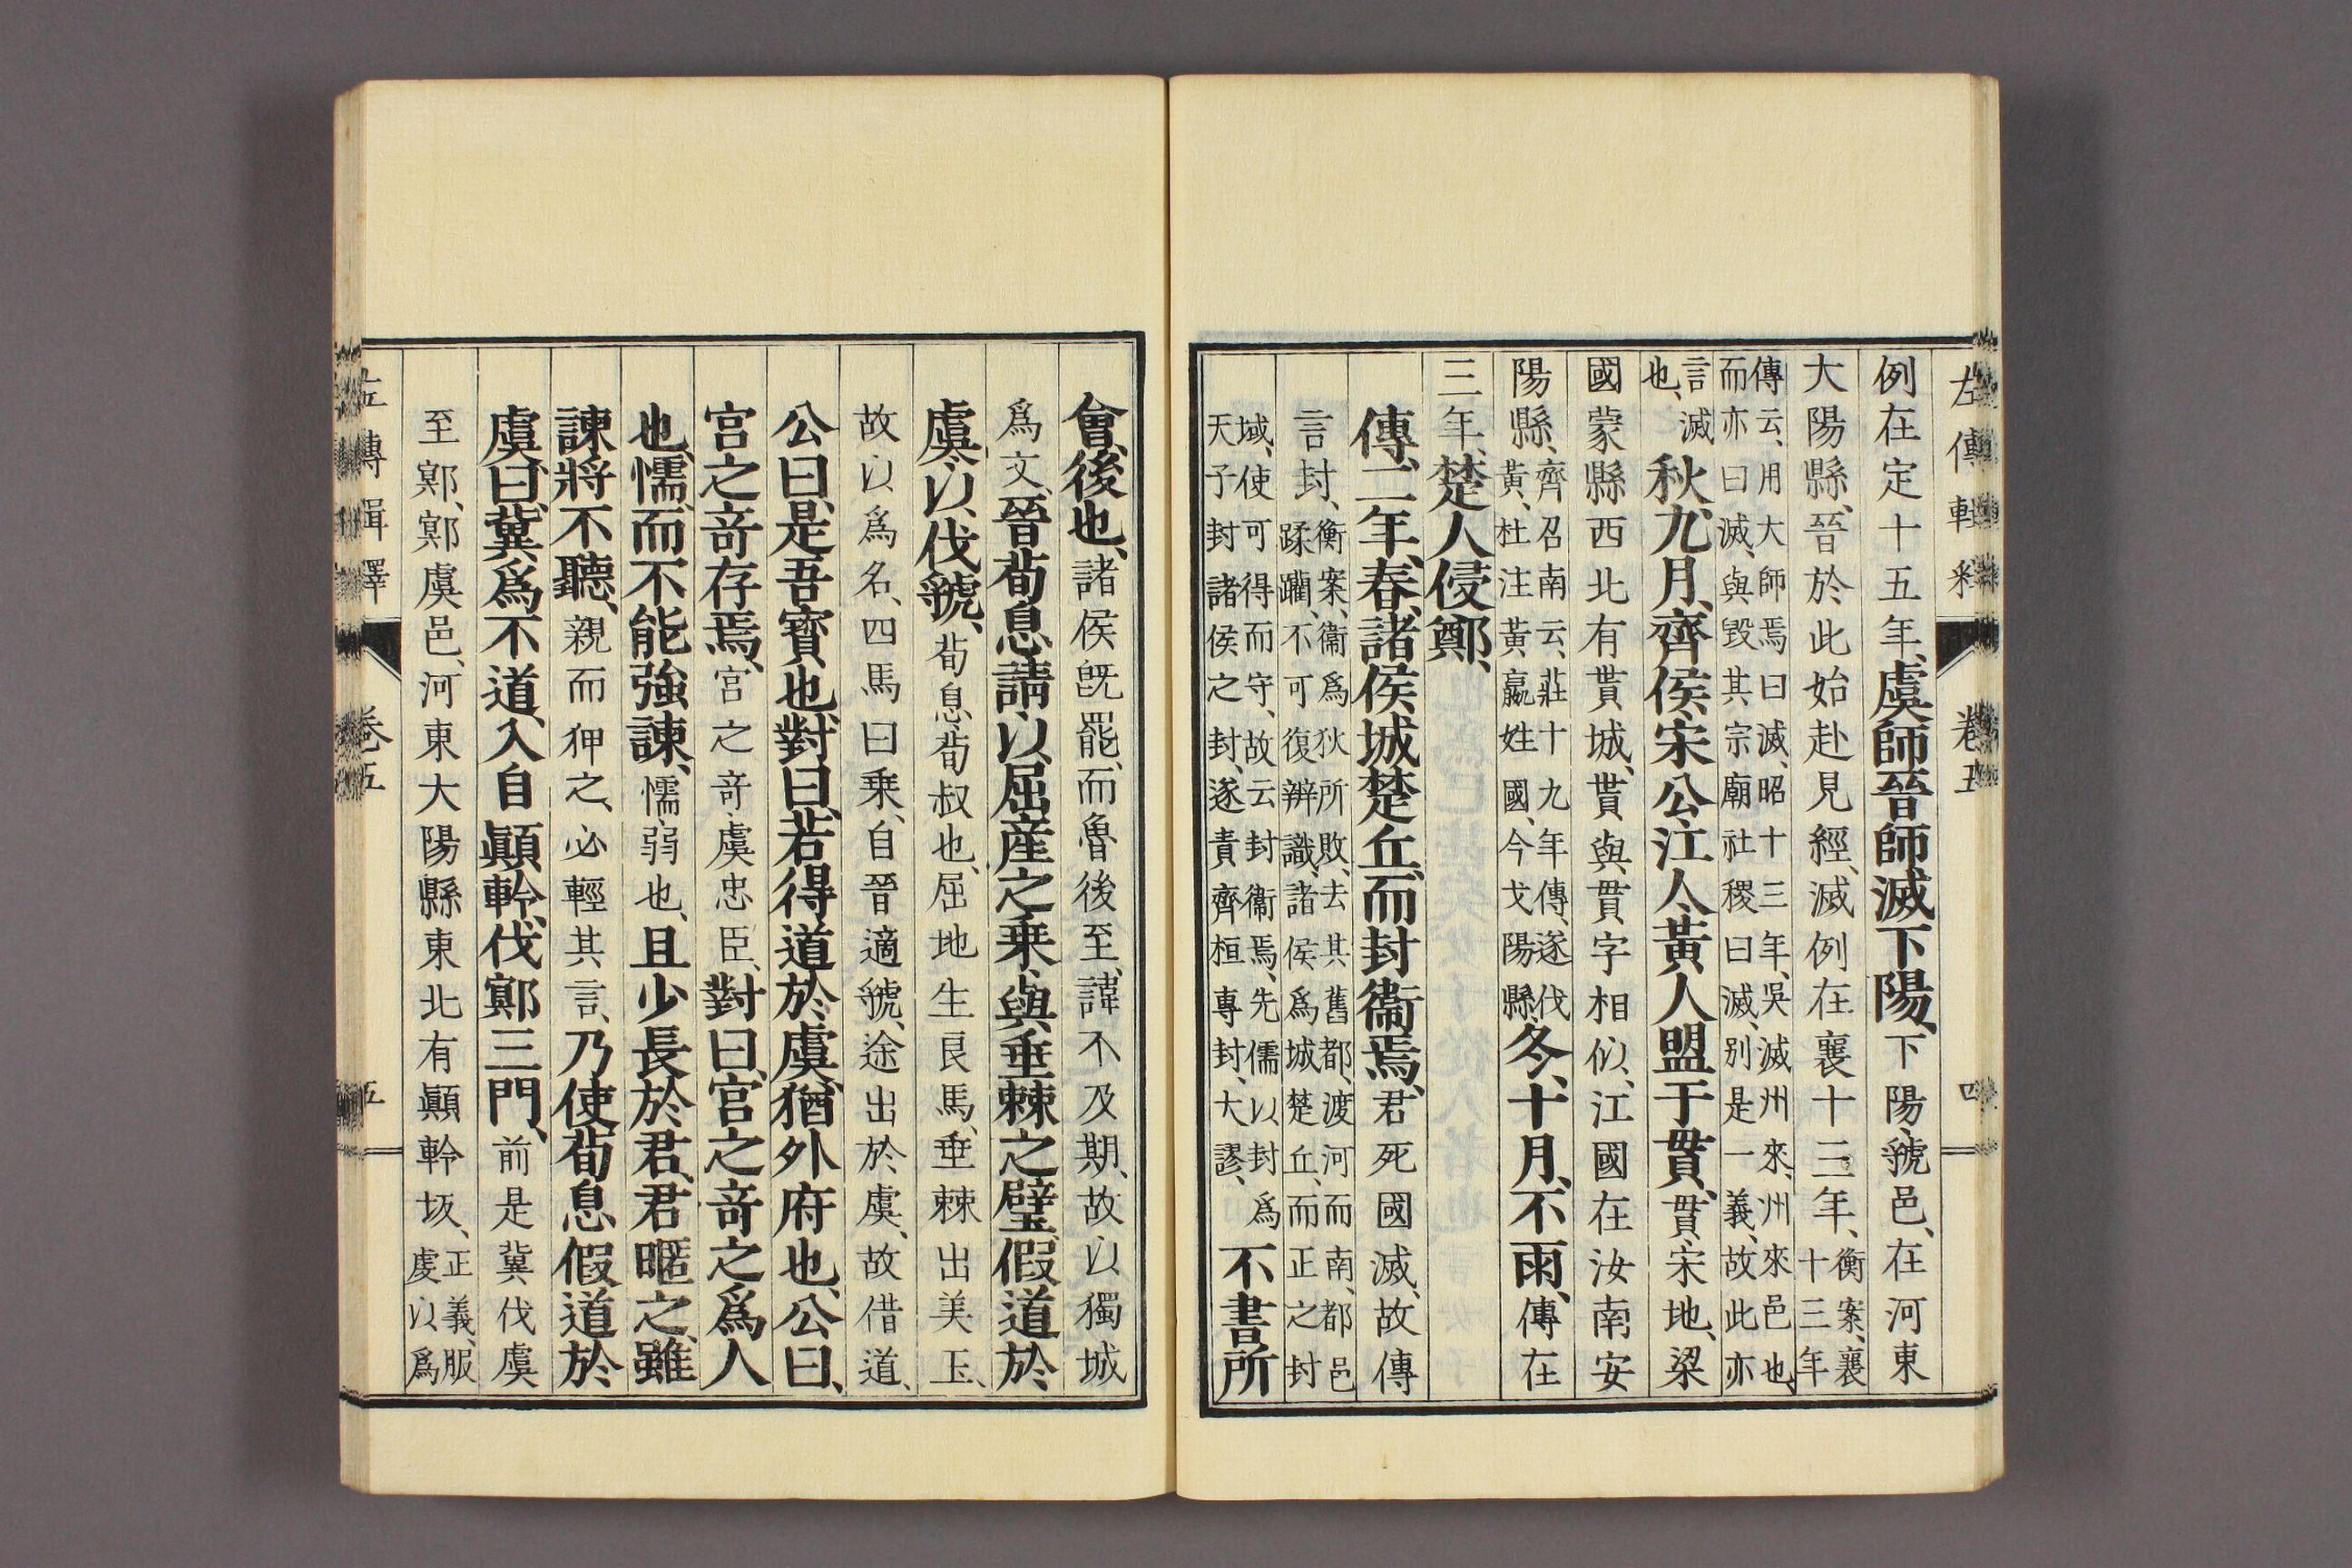 左傳輯釈 卷五 四
例在定十五年、虞師晉師滅下陽、下陽、虢邑、在河東
大陽縣、晉於此始赴見經、滅例在襄十三年、衡案、襄十三年
傳云、用大師焉曰滅、昭十三年、吳滅州來、州來邑也、
而亦曰滅、與毀其宗廟社稷曰滅、別是一義、故此亦
言滅也、秋、九月、齊侯、宋公、江人、黃人盟于貫、貫、宋地、梁
國蒙縣西北有貰城、貰與貫字相似、江國在汝南安
陽縣、齊召南云、莊十九年傳、遂伐黃、杜注黃嬴姓國、今弋陽縣、冬、十月、不雨、傳在
三年、楚人侵鄭、
傳、二年、春、諸侯城楚丘、而封衞焉、君死國滅、故傳
言封、衡案、衞爲狄所敗、去其舊都、渡河而南、都邑
蹂躪、不可復辨識、諸侯爲城楚丘、而正之封
域、使可得而守、故云封衞焉、先儒以封爲
天子封諸侯之封、遂責齊桓專封、大謬、不書所
會、後也、諸侯旣罷、而魯後至、諱不及期、故以獨城
爲文、晉荀息請以屈産之乗、與垂棘之璧、假道於
虞、以伐虢、荀息荀叔也、屈地生良馬、垂棘出美玉、
故以爲名、四馬曰乗、自晉適虢、途出於虞、故借道、
公曰、是吾寶也、對曰、若得道於虞、猶外府也、公曰、
宮之奇存焉、宮之奇、虞忠臣、對曰、宮之奇之爲人
也、懦、而不能強諫、懦、弱也、且少長於君、君暱之、雖
諫、將不聽、親而狎之、必輕其言、乃使荀息假道於
虞、曰、冀爲不道、入自顚軨、伐鄍三門、前是冀伐虞
至鄍、鄍虞邑、河東大陽縣東北有顚軨坂、正義、服虔以爲
左傳輯釋 卷五 五